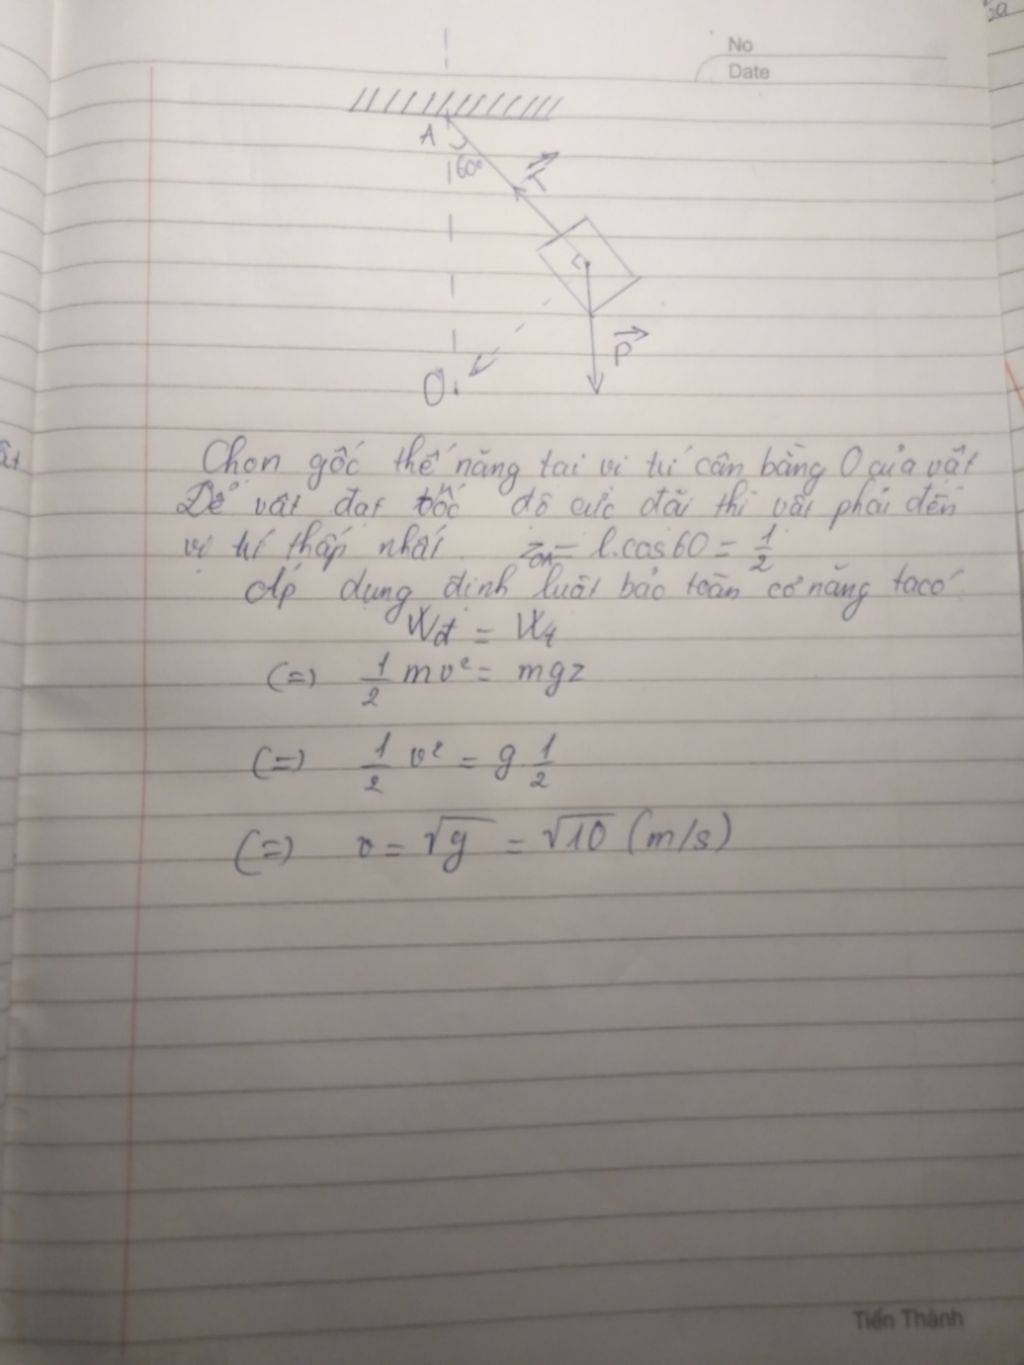 No
Date
A
60°
T
P
O
Chọn gốc thế năng tại vị trí cân bằng O của vật
Để vật đạt tốc độ cực đại thì vật phải đến
vị trí thấp nhất. z = l.cos60 = 1/2
Áp dụng định luật bảo toàn cơ năng ta có
Wđ = Wt
(=) 1/2 mv² = mgz
(=) 1/2 v² = g 1/2
(=) v = √g = √10 (m/s)
Tiến Thành